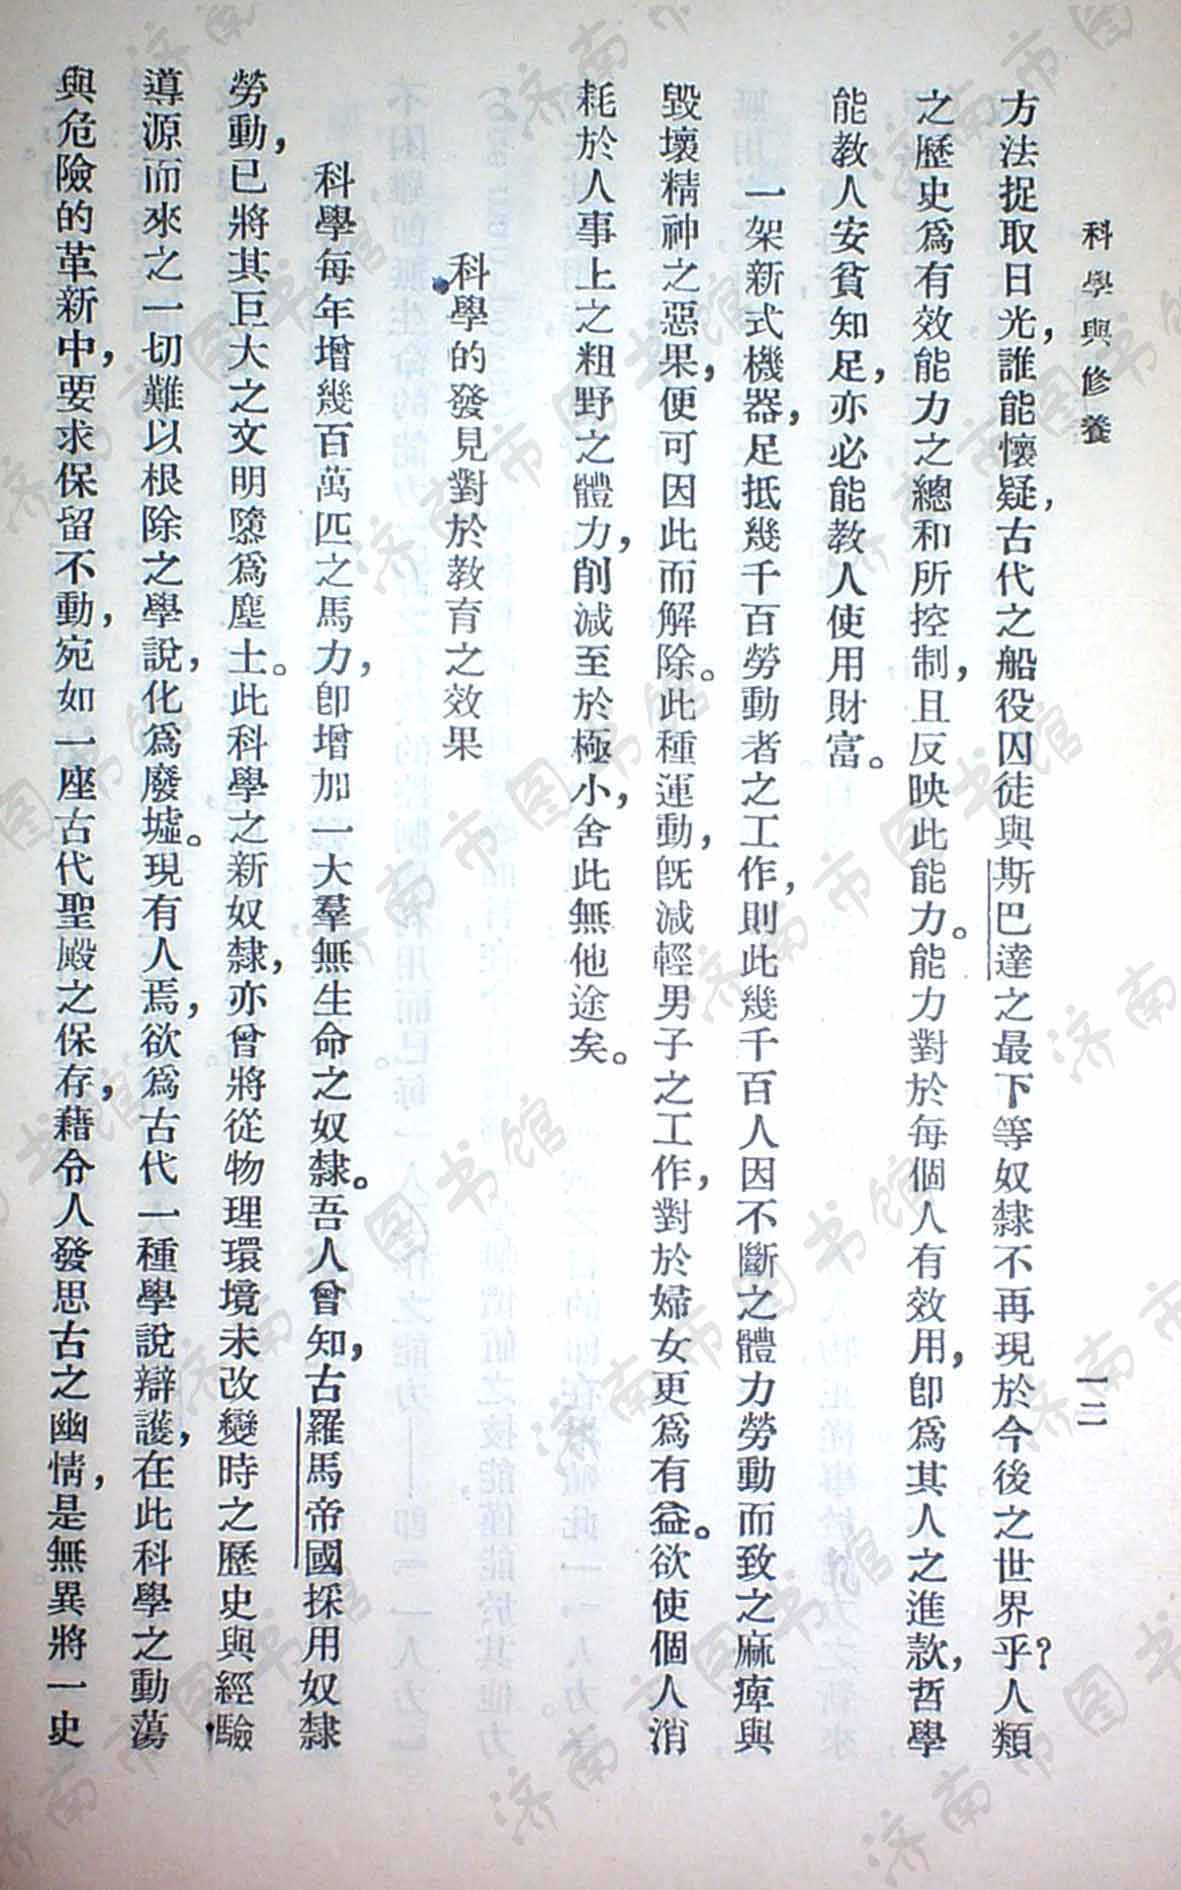 科學與修養
一二
方法捉取日光，誰能懷疑，古代之船役囚徒與斯巴達之最下等奴隸不再現於今後之世界乎？人類
之歷史爲有效能力之總和所控制，且反映此能力。能力對於每個人有效用，卽爲其人之進款，哲學
能教人安貧知足，亦必能教人使用財富。
一架新式機器，足抵幾千百勞動者之工作，則此幾千百人因不斷之體力勞動而致之麻痺與
毀壞精神之惡果，便可因此而解除。此種運動，旣減輕男子之工作，對於婦女更爲有益。欲使個人消
耗於人事上之粗野之體力，削減至於極小，舍此無他途矣。
科學的發見對於教育之效果
科學每年增幾百萬匹之馬力，卽增加一大羣無生命之奴隸。吾人曾知，古羅馬帝國採用奴隸
勞動，已將其巨大之文明隳爲塵土。此科學之新奴隸，亦曾將從物理環境未改變時之歷史與經驗
導源而來之一切難以根除之學說，化爲廢墟。現有人焉，欲爲古代一種學說辯護，在此科學之動蕩
與危險的革新中，要求保留不動，宛如一座古代聖殿之保存，藉令人發思古之幽情，是無異將一史
濟南市图书馆